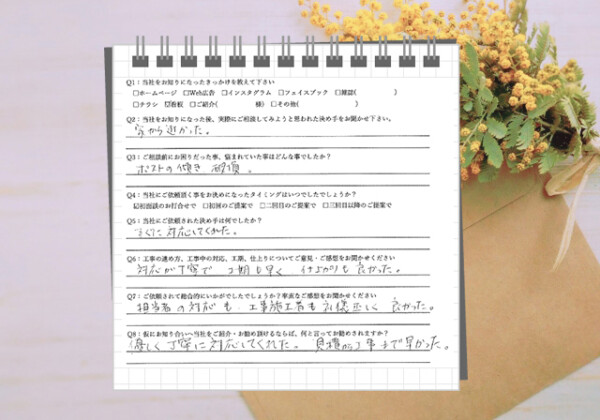 Q1：当社をお知りになったきっかけを教えて下さい
□ホームページ □Web広告 □インスタグラム □フェイスブック □雑誌( )
□チラシ ☑看板 □ご紹介( 様) □その他( )
Q2：当社をお知りになった後、実際にご相談してみようと思われた決め手をお聞かせ下さい。
家から近かった。
Q3：ご相談前にお困りだった事、悩まれていた事はどんな事でしたか？
ポストの傾き 破損。
Q4：当社にご依頼頂く事をお決めになったタイミングはいつでしたでしょうか？
☑初面談のお打合せで □初回のご提案で □二回目のご提案で □三回目以降のご提案で
Q5：当社にご依頼された決め手は何でしたか？
すぐに対応してくれた。
Q6：工事の進め方、工事中の対応、工期、仕上りについてご意見・ご感想をお聞かせください
対応が丁寧で 工期も早く 仕上がりも良かった。
Q7：ご依頼されて総合的にいかがでしたでしょうか？率直なご感想をお聞かせください
担当者の対応も、工事施工者も礼儀正しく 良かった。
Q8：仮にお知り合いへ当社をご紹介・お勧め頂けるならば、何と言ってお勧めされますか？
優しく丁寧に対応してくれた。見積から工事まで早かった。